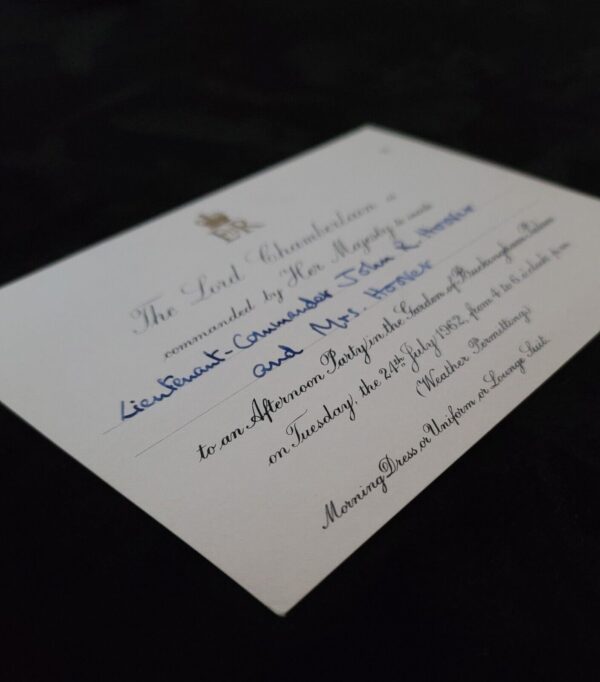 ER
The Lord Chamberlain is
commanded by Her Majesty to invite
Lieutenant-Commander John R. Hoover
and Mrs. Hoover
to an Afternoon Party in the Garden of Buckingham Palace
on Tuesday, the 24th July 1962, from 4 to 6 o'clock p.m.
(Weather Permitting)
Morning Dress, or Uniform or Lounge Suit.